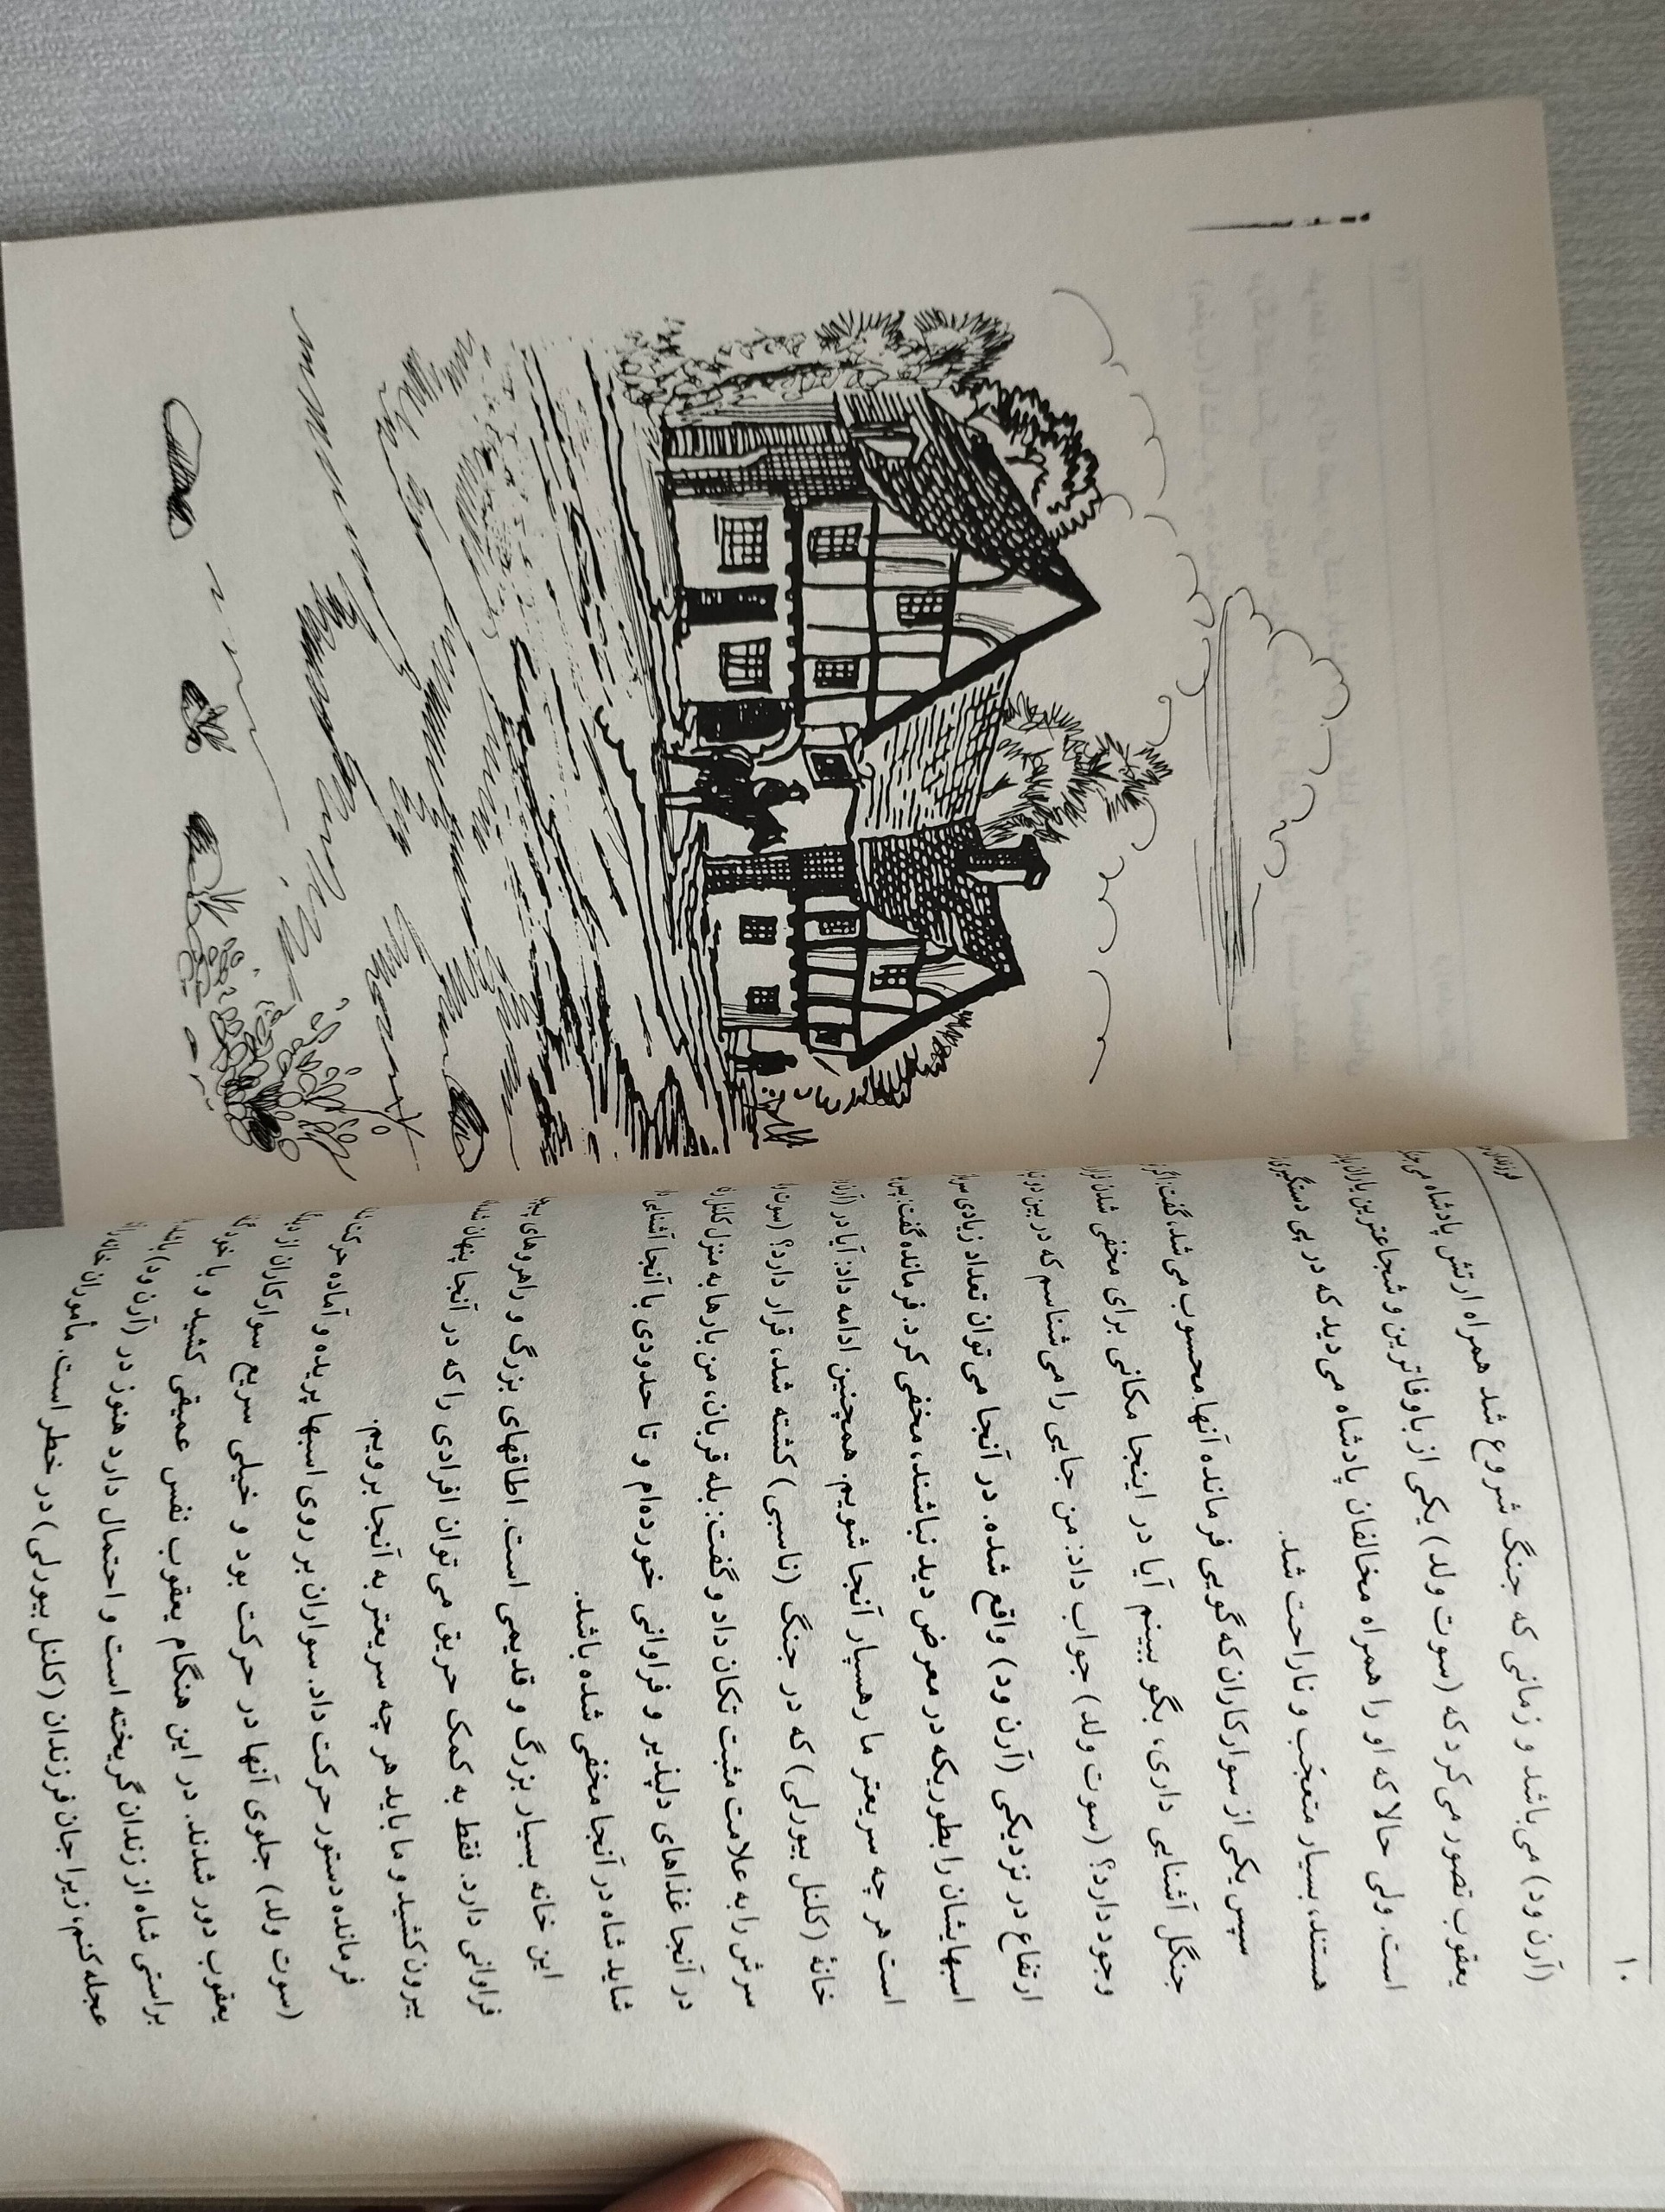 ۱۰
(آرن ود) می‌باشد و زمانی که جنگ شروع شد همراه ارتش پادشاه
یعقوب تصور می‌کرد که (سوت ولد) یکی از باوفاترین و شجاعترین یاران
است. ولی حالا که او را همراه مخالفان پادشاه می‌دید که در پی دستگیری
هستند، بسیار متعجّب و ناراحت شد.
سپس یکی از سوارکاران که گویی فرمانده آنها محسوب می‌شد، گفت:
جنگل آشنایی داری، بگو ببینم آیا در اینجا مکانی برای مخفی شدن
وجود دارد؟ (سوت ولد) جواب داد: من جایی را می‌شناسم که در بین دو
ارتفاع در نزدیکی (آرن ود) واقع شده. در آنجا می‌توان تعداد زیادی
اسبهایشان را بطوریکه در معرض دید نباشند، مخفی کرد. فرمانده گفت:
است هر چه سریعتر ما رهسپار آنجا شویم. همچنین ادامه داد: آیا در
خانهٔ (کلنل بیورلی) که در جنگ (ناسبی) کشته شد، قرار دارد؟ (سوت
سرش را به علامت مثبت تکان داد و گفت: بله قربان، من بارها به منزل کلنل
در آنجا غذاهای دلپذیر و فراوانی خورده‌ام و تا حدودی با آنجا آشنایی
شاید شاه در آنجا مخفی شده باشد.
این خانه بسیار بزرگ و قدیمی است. اطاقهای بزرگ و راهروهای
فراوانی دارد. فقط به کمک حریق می‌توان افرادی را که در آنجا پنهان
بیرون کشید و ما باید هر چه سریعتر به آنجا برویم.
فرمانده دستور حرکت داد. سواران بر روی اسبها پریده و آماده حرکت
(سوت ولد) جلوی آنها در حرکت بود و خیلی سریع سوارکاران از
یعقوب دور شدند. در این هنگام یعقوب نفس عمیقی کشید و با خود
براستی شاه از زندان گریخته است و احتمال دارد هنوز در (آرن ود)
عجله کنم، زیرا جان فرزندان (کلنل بیورلی) در خطر است. مأموران خانه